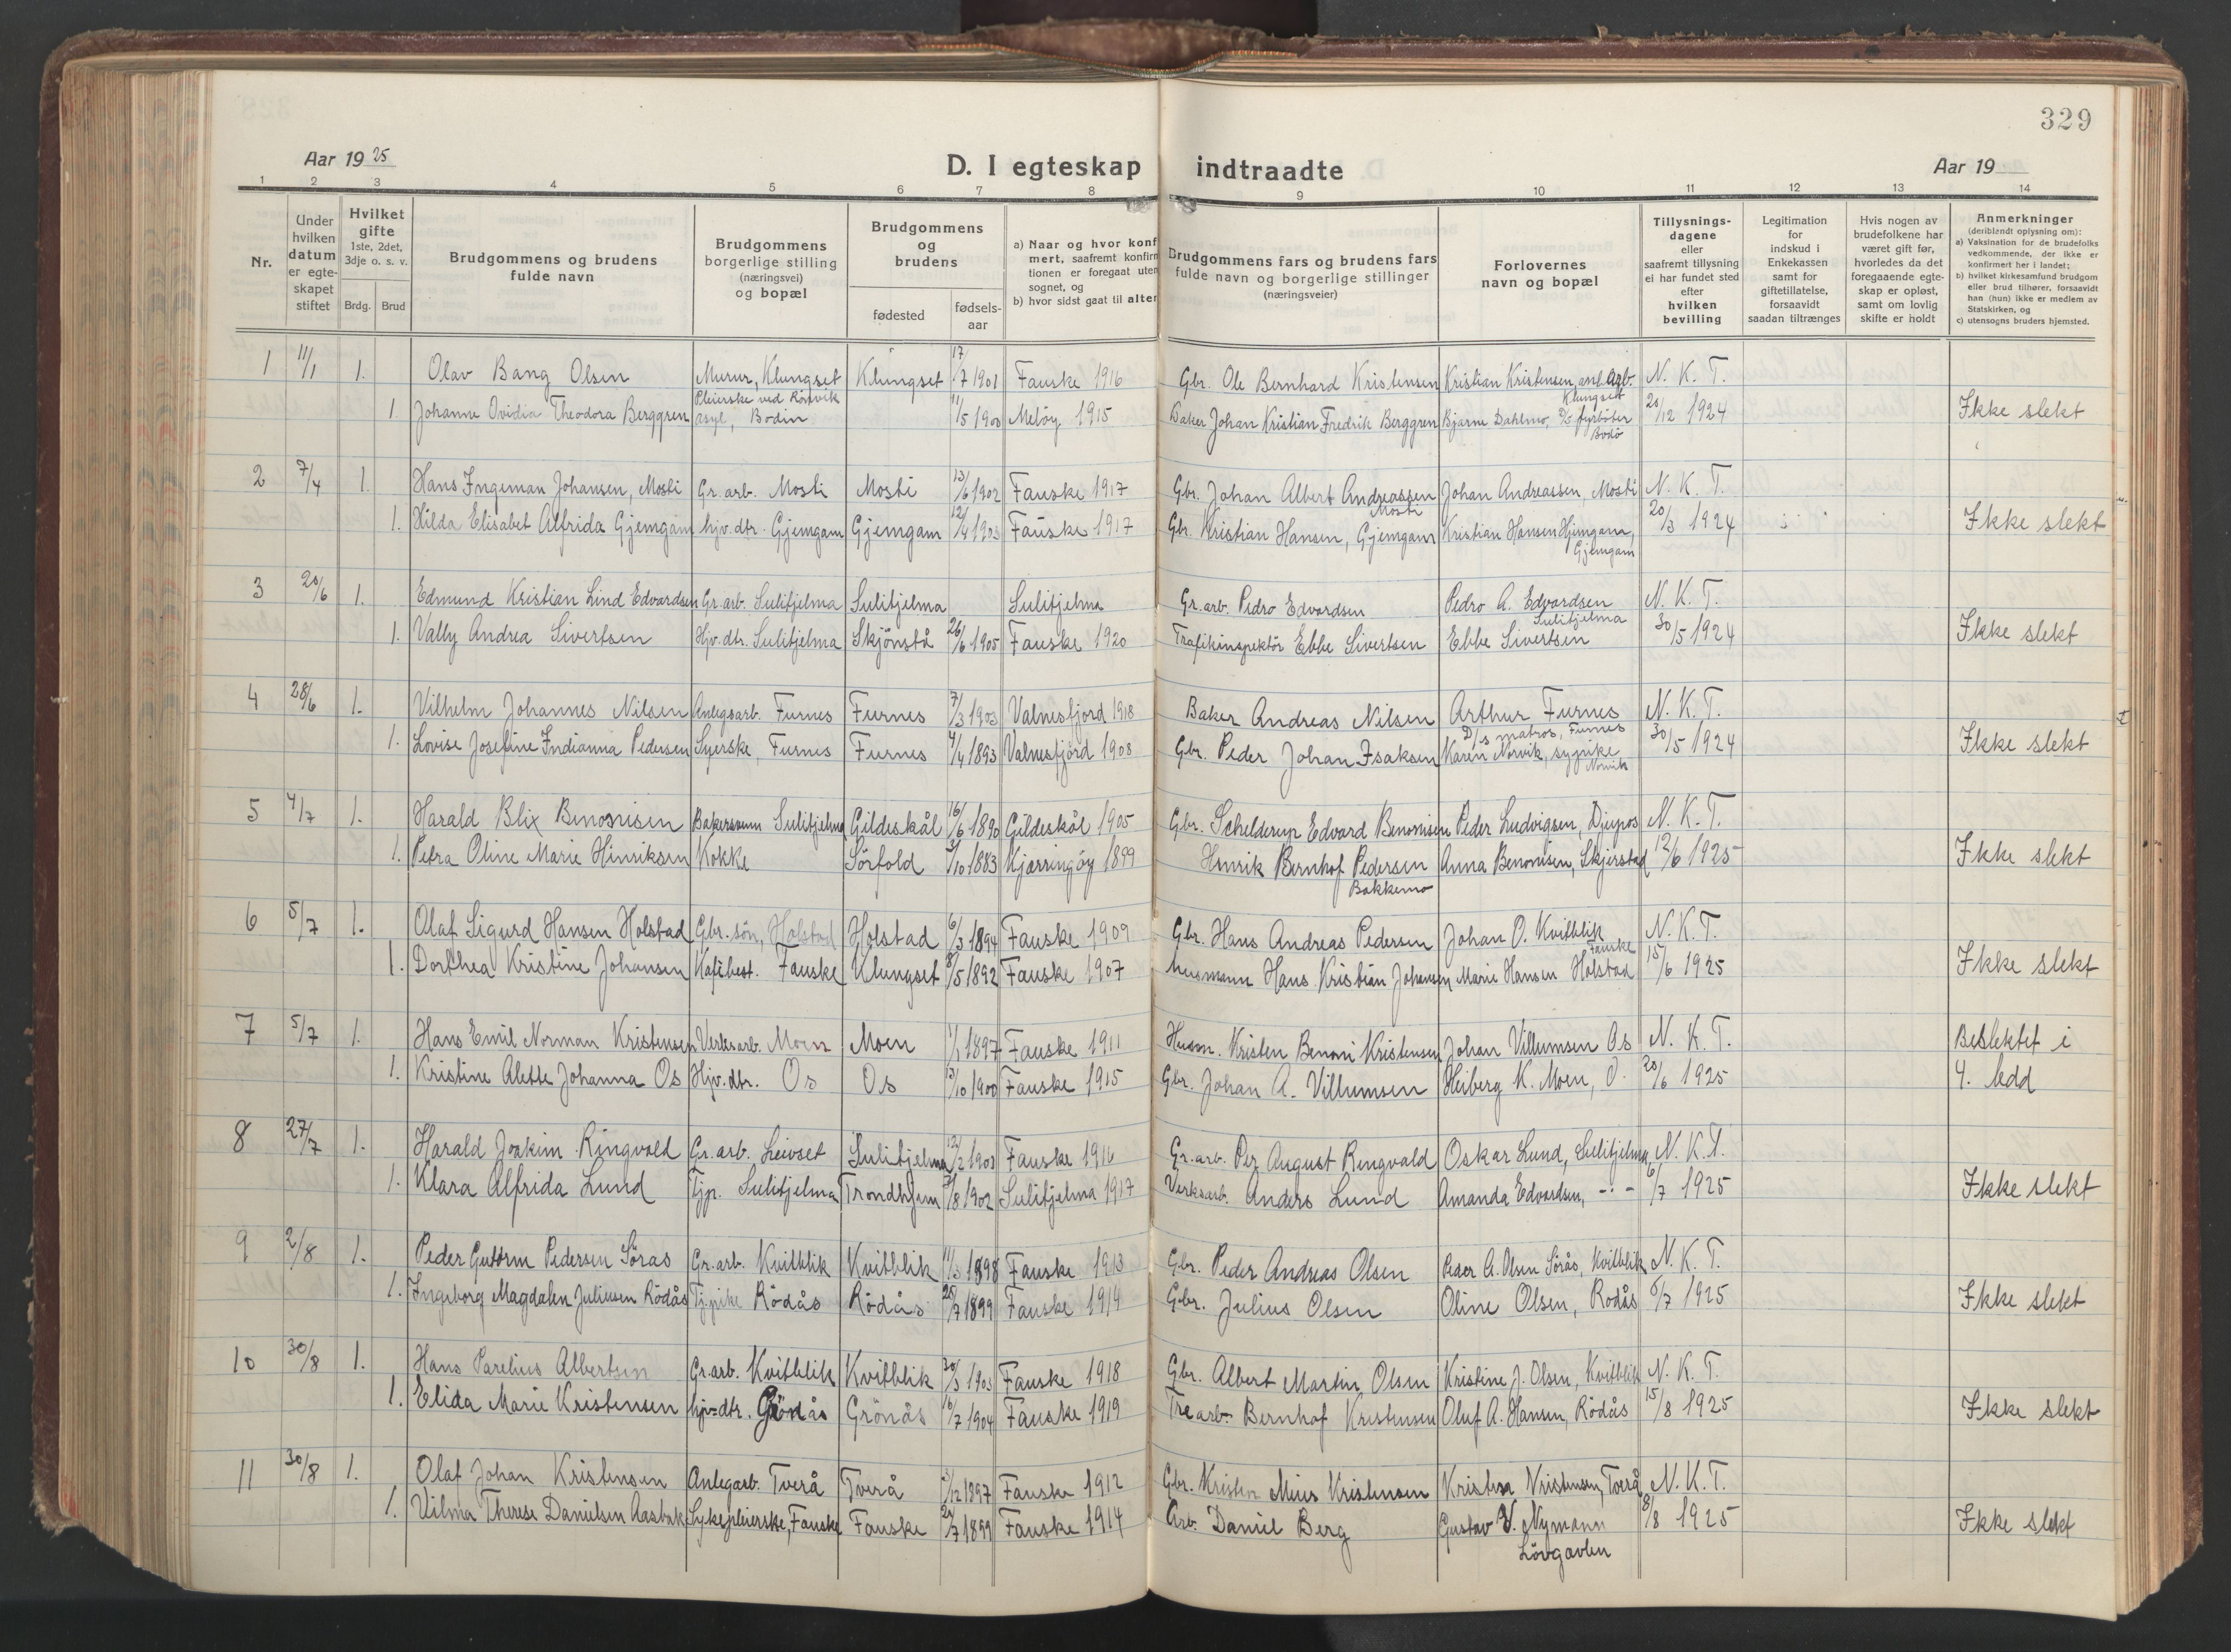 329
Aar 19 25
D. I egteskap indtraadte
Aar 19
1 2 3 4 5 6 7 8 9 10 11 12 13 14
Nr.
Under hvilken datum er egteskapet stiftet
Hvilket gifte 1ste, 2det, 3dje o. s. v.
Brdg. Brud
Brudgommens og brudens fulde navn
Brudgommens borgerlige stilling (næringsvei) og bopæl
Brudgommens og brudens
fødested fødsels-aar
a) Naar og hvor konf mert, saafremt konfirm tionen er foregaat uten sognet, og
b) hvor sidst gaat til alter
Brudgommens fars og brudens fars fulde navn og borgerlige stillinger (næringsveier)
Forlovernes navn og bopæl
Tillysnings-dagene eller saafremt tillysning ei har fundet sted efter hvilken bevilling
Legitimation for indskud i Enkekassen samt for giftetillatelse, forsaavidt saadan tiltrænges
Hvis nogen av brudefolkene har været gift før, hvorledes da det foregaaende egte-skap er opløst, samt om lovlig skifte er holdt
Anmerkninger (deriblandt oplysning om):
a) Vaksination for de brudefolks vedkommende, der ikke er konfirmert her i landet;
b) hvilket kirkesamfund brudgom eller brud tilhører, forsaavidt han (hun) ikke er medlem av Statskirken, og
c) utensogns bruders hjemsted.
1 11/1 1. Olav Bang Olsen Murur, Klungset Klungset 17/7 1901 Fauske 1916 Gbr. Ole Bernhard Kristensen Kristian Kristensen, Klungset N. K. T.
1 Johanne Ovidia Theodora Berggren Pleierske ved Rönvik asyl, Bodin 11/5 1900 Melöy 1915 Baker Johan Kristian Fredrik Berggren Bjarne Dahlmo, D/S fyrböter Bodö 20/12 1924 Ikke slekt
2 7/4 1. Hans Ingeman Johansen, Mosti Gr. arb. Mosti Mosti 13/6 1902 Fauske 1917 Gbr. Johan Albert Andreassen Mosti Johan Andreassen, Mosti N. K. T.
1. Hilda Elisabet Alfrida Gjemgam hjv. dtr. Gjemgam Gjemgam 12/4 1903 Fauske 1917 Gbr. Kristian Hansen, Gjemgam Kristian Hansen Hjemgam, Gjemgam 20/3 1924 Ikke slekt
3 20/6 1. Edmund Kristian Lind Edvardsen Gr. arb. Sulitjelma Sulitjelma Sulitjelma Gr. arb. Pedro Edvardsen Pedro A. Edvardsen Sulitjelma N. K. T.
1. Vally Andrea Sivertsen Hjv. dtr. Sulitjelma Skjönstå 26/6 1905 Fauske 1920 Trafikinspektör Ebbe Sivertsen Ebbe Sivertsen 30/5 1924 Ikke slekt
4 28/6 1. Vilhelm Johannes Nilsen Anlegsarb. Furnes Furnes 7/3 1903 Valnesfjord 1918 Baker Andreas Nilsen Arthur Furnes D/s matros, Furnes N. K. T.
1. Lovise Josefine Indianna Pedersen Syerske, Furnes Furnes 4/4 1893 Valnesfjord 1908 Gbr. Peder Johan Isaksen Karen Norvik, sypike Norvik 30/5 1924 Ikke slekt
5 4/7 1. Harald Blix Benonisen Bakersvenn Sulitjelma Gildeskål 16/6 1890 Gildeskål 1905 Gbr. Schelderup Edvard Benonisen Peder Ludvigsen, Djupos N. K. T.
1. Petra Oline Marie Hinriksen Kokke Sörfold /10 1883 Kjerringöy 1899 Henrik Bernhof Pedersen Bakkemo Anna Benonisen, Skjerstad 12/6 1925 Ikke slekt
6 5/7 1. Olaf Sigurd Hansen Holstad Gbr. sön, Holstad Holstad 6/3 1894 Fauske 1909 Gbr. Hans Andreas Pedersen Johan O. Kvitblik Fauske N. K. T.
1. Dorthea Kristine Johansen Kafibest. Fauske Klungset 8/5 1892 Fauske 1907 Husmann Hans Kristian Johansen Marie Hansen Holstad 15/6 1925 Ikke slekt
7 5/7 1. Hans Emil Norman Kristensen Verksarb. Moen Moen 1/1 1897 Fauske 1911 Husm. Kristen Benoni Kristensen Johan Villumsen Os N. K. T. Beslektet i
1. Kristine Alette Johanna Os Hjv. dtr. Os Os 13/10 1900 Fauske 1915 Gbr. Johan A. Villumsen Heiberg K. Moen, 20/6 1925 4. ledd
8 27/7 1. Harald Joakim Ringvold Gr. arb. Leivset Sulitjelma 12/2 1903 Fauske 1916 Gr. arb. Per August Ringvald Oskar Lund, Sulitjelma N. K. T.
1. Klara Alfrida Lund Tjp. Sulitjelma Trondhjem /8 1902 Sulitjelma 1917 Verksarb. Anders Lund Amanda Edvardsen, -"- 6/7 1925 Ikke slekt
9 2/8 1. Peder Guttorm Pedersen Söras Gr. arb. Kvitblik Kvitblik 11/3 1898 Fauske 1913 Gbr. Peder Andreas Olsen Peder A. Olsen Sörås, Kvitblik N. K. T.
1. Ingeborg Magdalen Juliusen Rödås Tj. pike Rödås Rödås 28/7 1899 Fauske 1914 Gbr. Julius Olsen Oline Olsen, Rödås 6/7 1925 Ikke slekt
10 30/8 1. Hans Parelius Albertsen Gr. arb. Kvitblik Kvitblik 30/3 1903 Fauske 1918 Gbr. Albert Martin Olsen Kristine J. Olsen, Kvitblik N. K. T.
1. Elida Marie Kristensen hjv= dtr. Grönås Grönås 16/7 1904 Fauske 1919 Trearb. Bernhof Kristensen Oluf A. Hansen, Rödås 15/8 1925 Ikke slekt
11 30/8 1. Olaf Johan Kristensen Anlegarb. Tverå Tverå /12 1897 Fauske 1912 Gbr. Kristen Mius Kristensen Kristen Kristensen, Tverå N. K. T.
1. Vilma Therese Danielsen Aasbak Sykepleierske, Fauske Fauske 20/7 1899 Fauske 1914 Arb. Daniel Berg Gustav V. Nymann Lövgavlen 8/8 1925 Ikke slekt